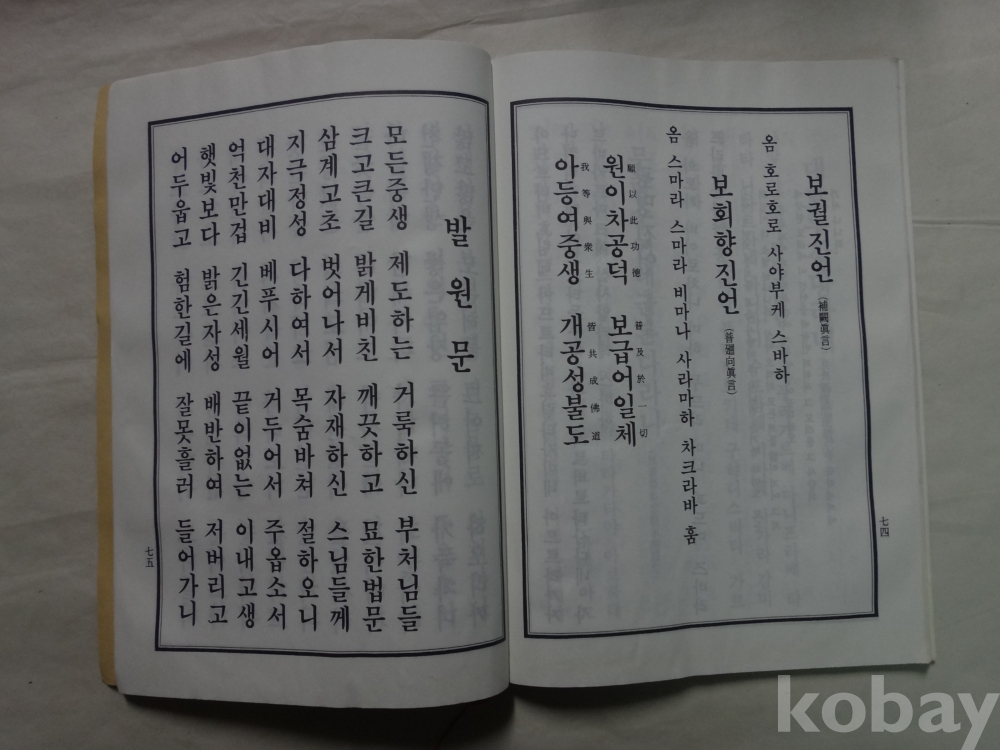 보궐진언 (補闕眞言)
옴 호로호로 사야부케 스바하
보회향진언 (普廻向眞言)
옴 스마라 스마라 비마나 사라마하 차크라바 훔
원이차공덕 보급어일체
願以此功德 普及於一切
아등여중생 개공성불도
我等與衆生 皆共成佛道
七四
발원문
모든중생 제도하는 거룩하신 부처님들
크고큰길 밝게비친 깨끗하고 묘한법문
삼계고초 벗어나서 자재하신 스님들께
지극정성 다하여서 목숨바쳐 절하오니
대자대비 베푸시어 거두어서 주옵소서
억천만겁 긴긴세월 끝이없는 이내고생
햇빛보다 밝은자성 배반하여 저버리고
어두웁고 험한길에 잘못흘러 들어가니
七五
kobay